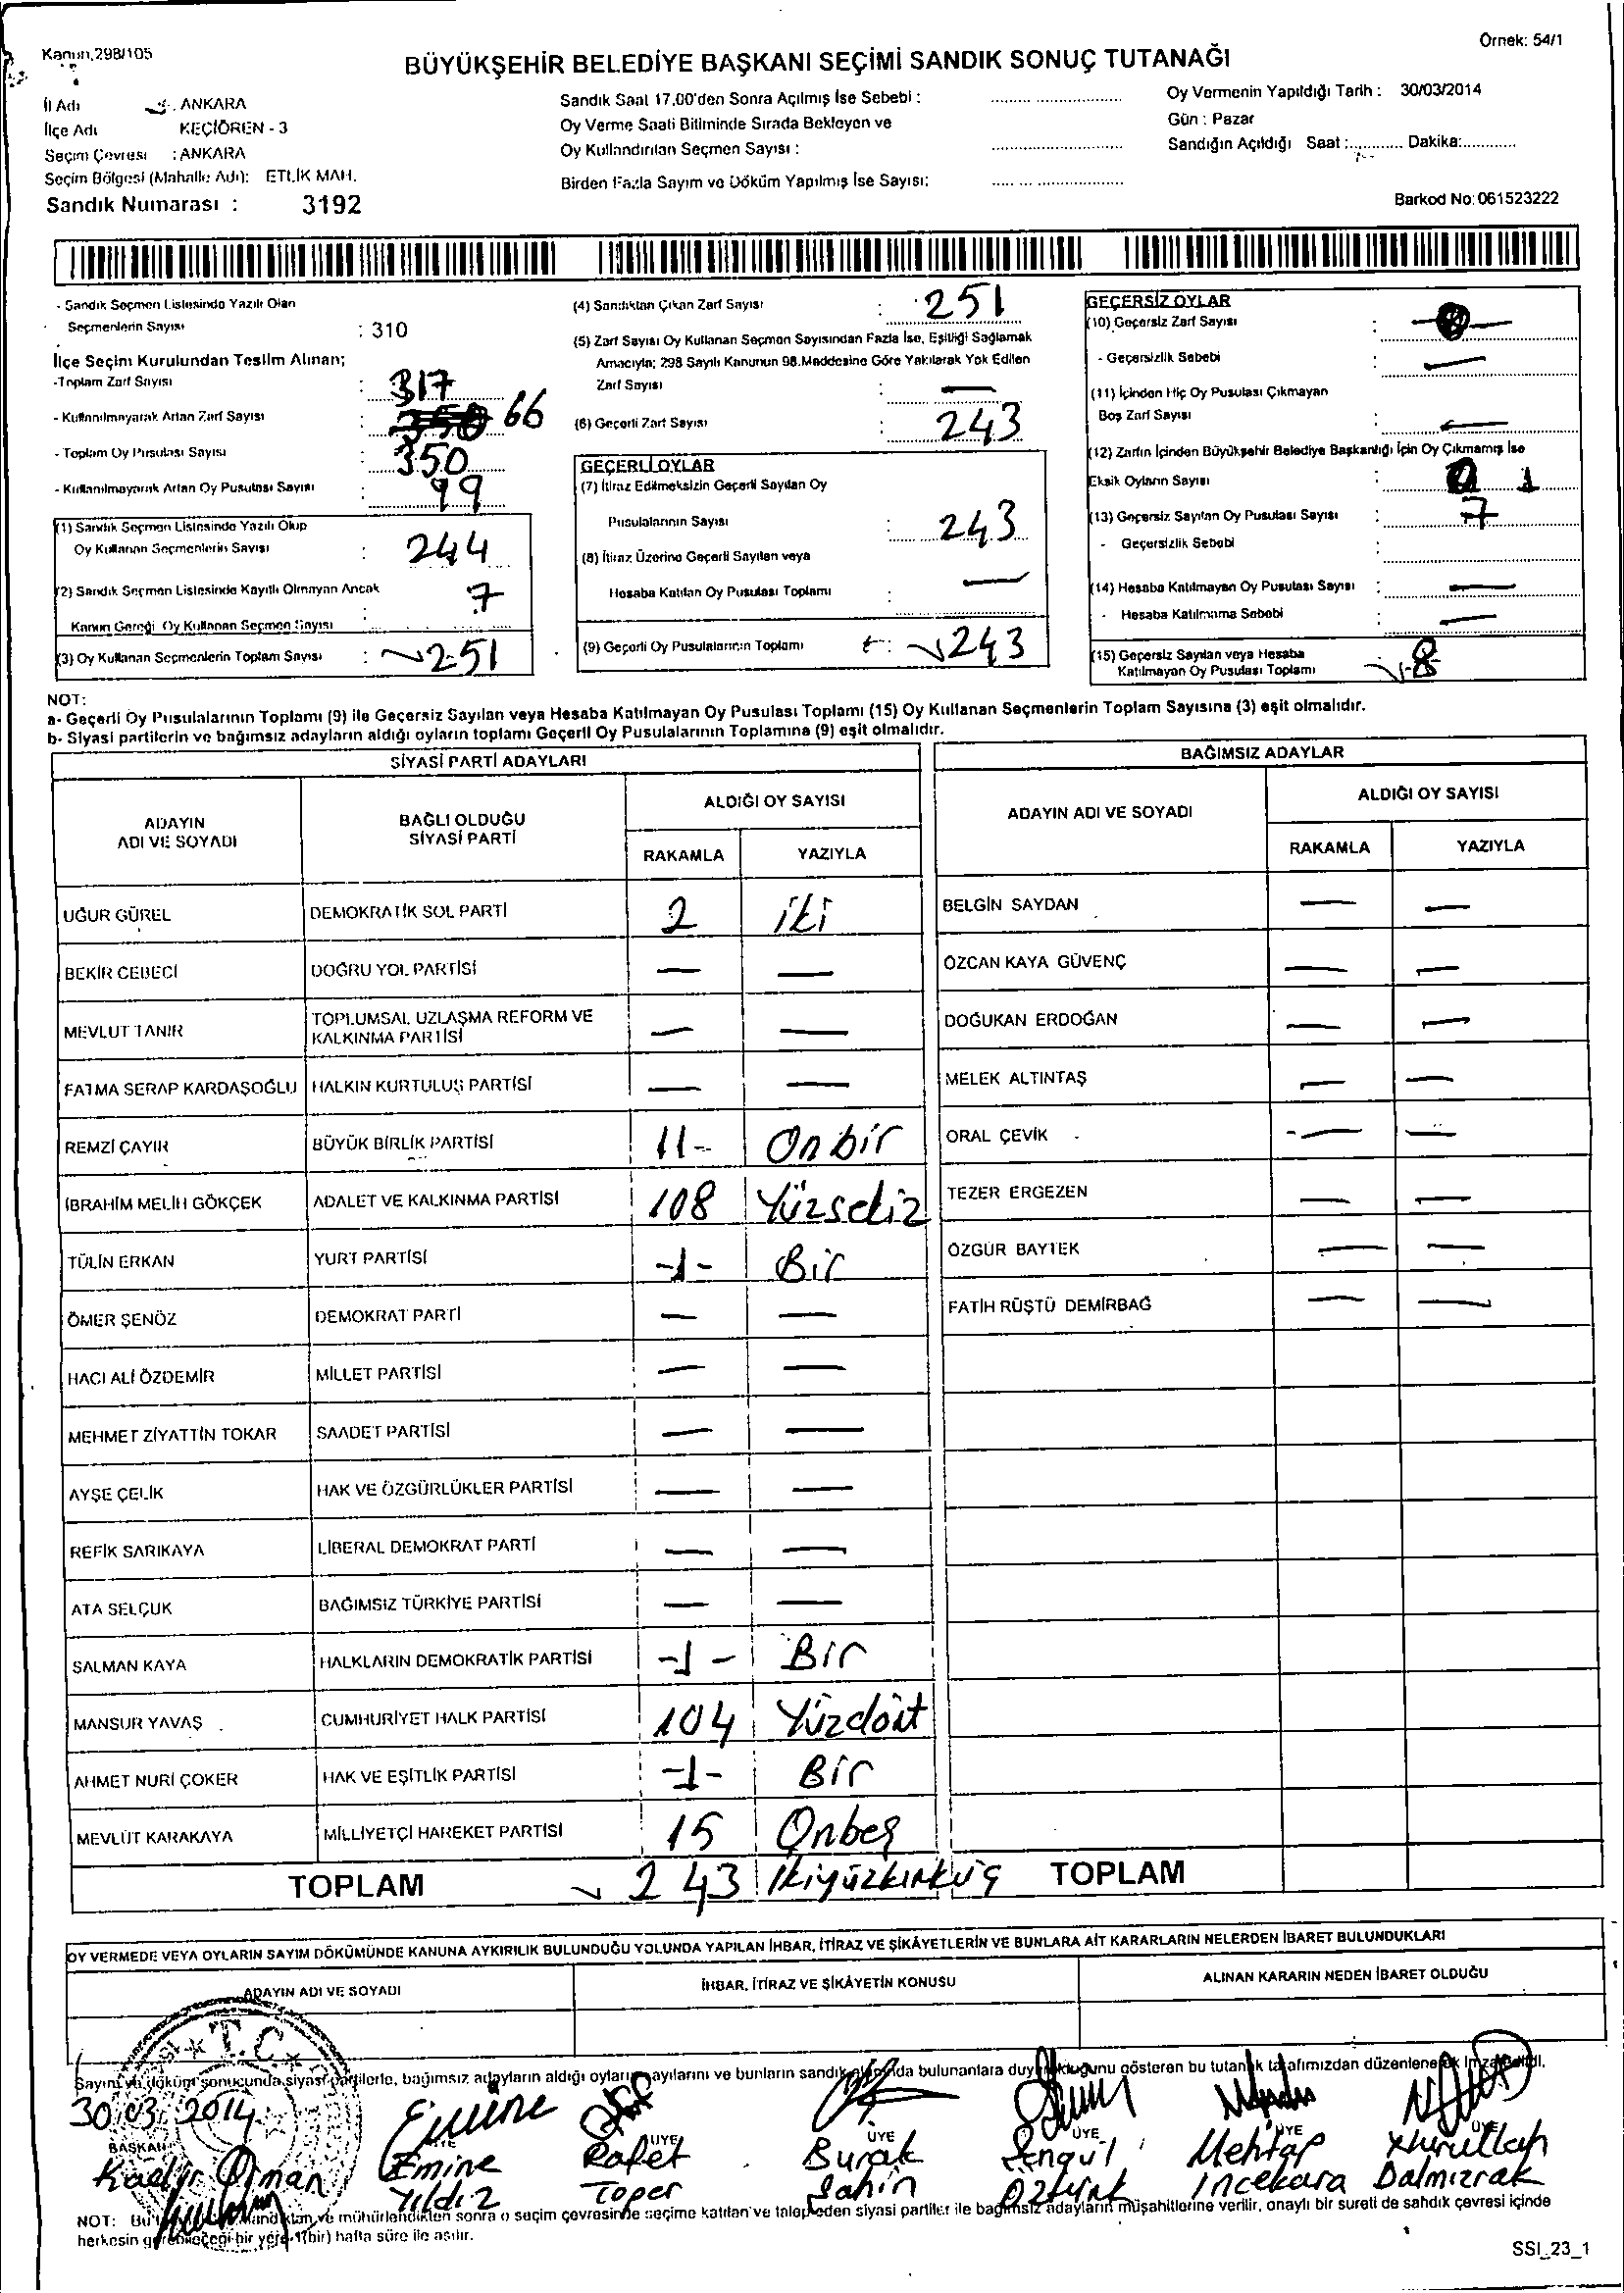 Kanun,298/105
Örnek: 54/1
BÜYÜKŞEHİR BELEDİYE BAŞKANI SEÇİMİ SANDIK SONUÇ TUTANAĞI
İl Adı : ANKARA
İlçe Adı KEÇİÖREN - 3
Seçim Çevresi : ANKARA
Seçim Bölgesi (Mahalle Adı): ETLİK MAH.
Sandık Numarası : 3192
Sandık Saat 17.00'den Sonra Açılmış İse Sebebi :
Oy Verme Saati Bitiminde Sırada Bekleyen ve
Oy Kullandırılan Seçmen Sayısı :
Birden Fazla Sayım ve Döküm Yapılmış İse Sayısı:
Oy Vermenin Yapıldığı Tarih : 30/03/2014
Gün : Pazar
Sandığın Açıldığı Saat :............ Dakika:............
Barkod No: 061523222
- Sandık Seçmen Listesinde Yazılı Olan
Seçmenlerin Sayısı : 310
İlçe Seçim Kurulundan Teslim Alınan;
-Toplam Zarf Sayısı : 317
- Kullanılmayarak Artan Zarf Sayısı : 350 66
- Toplam Oy Pusulası Sayısı : 350
- Kullanılmayarak Artan Oy Pusulası Sayısı : 99
(1) Sandık Seçmen Listesinde Yazılı Olup
Oy Kullanan Seçmenlerin Sayısı : 244
(2) Sandık Seçmen Listesinde Kayıtlı Olmayan Ancak
Kanun Gereği Oy Kullanan Seçmen Sayısı : 7
(3) Oy Kullanan Seçmenlerin Toplam Sayısı : 251
(4) Sandıktan Çıkan Zarf Sayısı : 251
(5) Zarf Sayısı Oy Kullanan Seçmen Sayısından Fazla İse, Eşitliği Sağlamak
Amacıyla; 298 Sayılı Kanunun 98.Maddesine Göre Yakılarak Yok Edilen
Zarf Sayısı : —
(6) Geçerli Zarf Sayısı : 243
GEÇERLİ OYLAR
(7) İtiraz Edilmeksizin Geçerli Sayılan Oy
Pusulalarının Sayısı : 243
(8) İtiraz Üzerine Geçerli Sayılan veya
Hesaba Katılan Oy Pusulası Toplamı : —
(9) Geçerli Oy Pusulalarının Toplamı : 243
GEÇERSİZ OYLAR
(10) Geçersiz Zarf Sayısı :
- Geçersizlik Sebebi : —
(11) İçinden Hiç Oy Pusulası Çıkmayan
Boş Zarf Sayısı : —
(12) Zarfın İçinden Büyükşehir Belediye Başkanlığı İçin Oy Çıkmamış İse
Eksik Oyların Sayısı : 1
(13) Geçersiz Sayılan Oy Pusulası Sayısı : 7
- Geçersizlik Sebebi :
(14) Hesaba Katılmayan Oy Pusulası Sayısı : —
- Hesaba Katılmama Sebebi : —
(15) Geçersiz Sayılan veya Hesaba
Katılmayan Oy Pusulası Toplamı 8
NOT:
a- Geçerli Oy Pusulalarının Toplamı (9) ile Geçersiz Sayılan veya Hesaba Katılmayan Oy Pusulası Toplamı (15) Oy Kullanan Seçmenlerin Toplam Sayısına (3) eşit olmalıdır.
b- Siyasi partilerin ve bağımsız adayların aldığı oyların toplamı Geçerli Oy Pusulalarının Toplamına (9) eşit olmalıdır.
SİYASİ PARTİ ADAYLARI
ADAYIN ADI VE SOYADI
BAĞLI OLDUĞU SİYASİ PARTİ
ALDIĞI OY SAYISI
RAKAMLA YAZIYLA
UĞUR GÜREL DEMOKRATİK SOL PARTİ 2 iki
BEKİR CEBECİ DOĞRU YOL PARTİSİ — —
MEVLUT TANIR TOPLUMSAL UZLAŞMA REFORM VE KALKINMA PARTİSİ — —
FATMA SERAP KARDAŞOĞLU HALKIN KURTULUŞ PARTİSİ — —
REMZİ ÇAYIR BÜYÜK BİRLİK PARTİSİ 11- Onbir
İBRAHİM MELİH GÖKÇEK ADALET VE KALKINMA PARTİSİ 108 Yüzsekiz
TÜLİN ERKAN YURT PARTİSİ -1- Bir
ÖMER ŞENÖZ DEMOKRAT PARTİ — —
HACI ALİ ÖZDEMİR MİLLET PARTİSİ — —
MEHMET ZİYATTİN TOKAR SAADET PARTİSİ — —
AYŞE ÇELİK HAK VE ÖZGÜRLÜKLER PARTİSİ — —
REFİK SARIKAYA LİBERAL DEMOKRAT PARTİ — —
ATA SELÇUK BAĞIMSIZ TÜRKİYE PARTİSİ — —
SALMAN KAYA HALKLARIN DEMOKRATİK PARTİSİ -1- Bir
MANSUR YAVAŞ CUMHURİYET HALK PARTİSİ 104 Yüzdört
AHMET NURİ ÇOKER HAK VE EŞİTLİK PARTİSİ -1- Bir
MEVLÜT KARAKAYA MİLLİYETÇİ HAREKET PARTİSİ 15 Onbeş
TOPLAM 243 İkiyüzkırküç
BAĞIMSIZ ADAYLAR
ADAYIN ADI VE SOYADI
ALDIĞI OY SAYISI
RAKAMLA YAZIYLA
BELGİN SAYDAN — —
ÖZCAN KAYA GÜVENÇ — —
DOĞUKAN ERDOĞAN — —
MELEK ALTINTAŞ — —
ORAL ÇEVİK — —
TEZER ERGEZEN — —
ÖZGÜR BAYTEK — —
FATİH RÜŞTÜ DEMİRBAĞ — —
TOPLAM
OY VERMEDE VEYA OYLARIN SAYIM DÖKÜMÜNDE KANUNA AYKIRILIK BULUNDUĞU YOLUNDA YAPILAN İHBAR, İTİRAZ VE ŞİKÂYETLERİN VE BUNLARA AİT KARARLARIN NELERDEN İBARET BULUNDUKLARI
ADAYIN ADI VE SOYADI İHBAR, İTİRAZ VE ŞİKÂYETİN KONUSU ALINAN KARARIN NEDEN İBARET OLDUĞU
T.C
Sayım ve döküm sonucunda siyasi partilerle, bağımsız adayların aldığı oyların sayılarını ve bunların sandık bulunanlara gösteren bu tutanak tarafımızdan düzenlenerek
30.03.2014
Emine
BAŞKAN ÜYE ÜYE ÜYE ÜYE ÜYE ÜYE
Kadir Osman
Emine Yıldız
Rafet Toper
Burak Şahin
Şengül Öztürk
Mehtap İncekara
Dalmızrak
NOT: ve mühürlendikten sonra o seçim çevresinde seçime katılan ve talep eden siyasi partiler ile bağımsız adayların müşahitlerine verilir, onaylı bir sureti de sandık çevresi içinde
herkesin görebileceği bir yere 1(bir) hafta süre ile asılır.
SSI_23_1